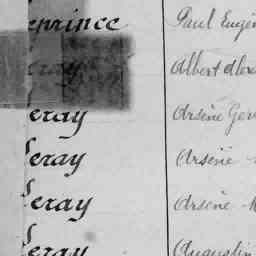 eprince Paul Eugèn
eray Albert Alex
eray Arsène Ger
Leray Arsène
Leray Arsène
Leray Augustin